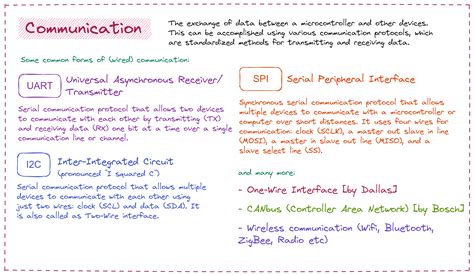 Communication
The exchange of data between a microcontroller and other devices.
This can be accomplished using various communication protocols, which
are standardized methods for transmitting and receiving data.
Some common forms of (wired) communication:
UART
Universal Asynchronous Receiver/
Transmitter
Serial communication protocol that allows two devices
to communicate with each other by transmitting (TX)
and receiving data (RX) one bit at a time over a single
communication line or channel.
I2C
Inter-Integrated Circuit
(pronounced 'I squared C')
Serial communication protocol that allows multiple
devices to communicate with each other using
just two wires: clock (SCL) and data (SDA). It
is also called as Two-Wire interface.
SPI
Serial Peripheral Interface
Synchronous serial communication protocol that allows
multiple devices to communicate with a microcontroller or
computer over short distances. It uses four wires for
communication: clock (SCLK), a master out slave in line
(MOSI), a master in slave out line (MISO), and a
slave select line (SS).
and many more:
- One-Wire Interface [by Dallas]
- CANbus (Controller Area Network) [by Bosch]
- Wireless communication (Wifi, Bluetooth,
ZigBee, Radio etc)